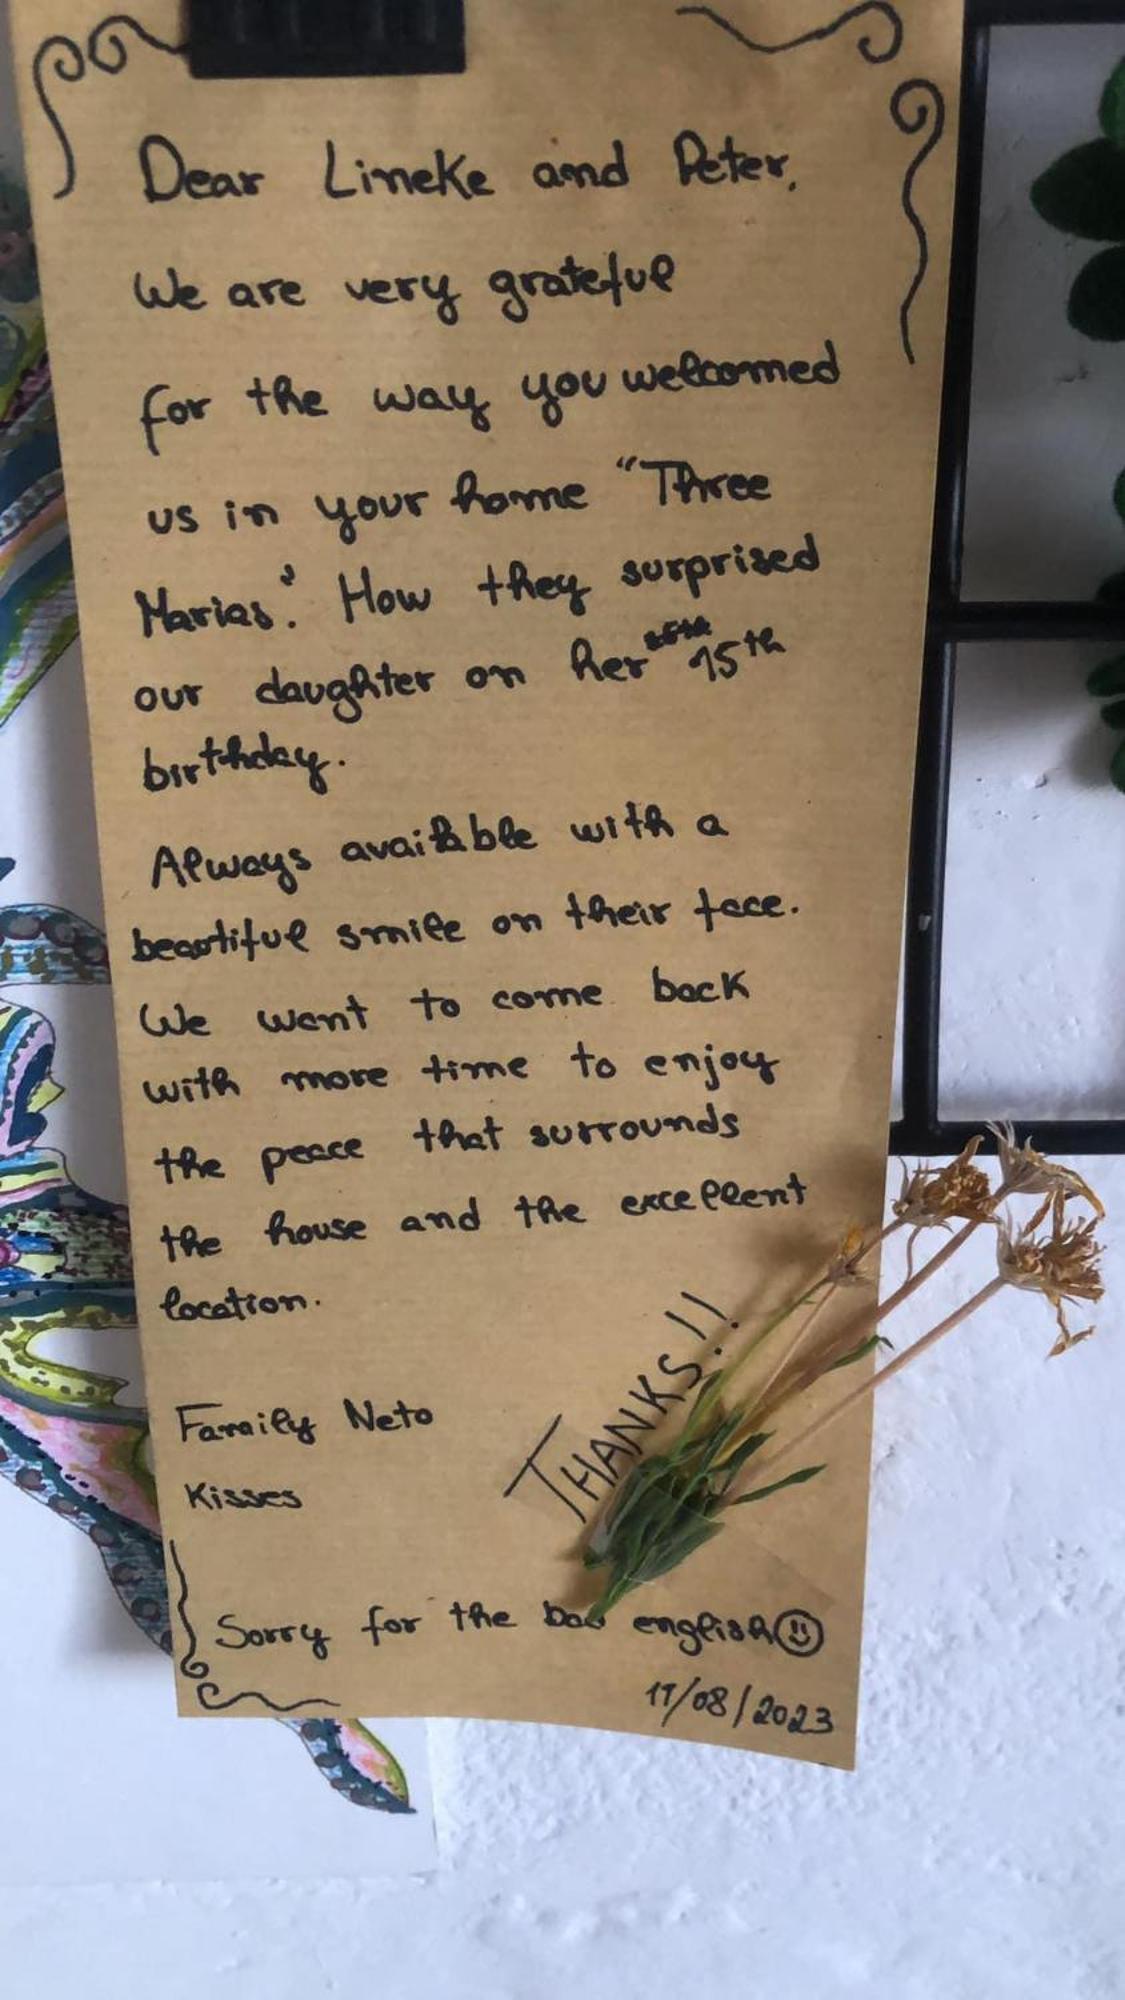 Dear Lineke and Peter,
We are very grateful
for the way you welcomed
us in your home "Three
Marias". How they surprised
our daughter on her 15th
birthday.
Always available with a
beautiful smile on their face.
We want to come back
with more time to enjoy
the peace that surrounds
the house and the excellent
location.
THANKS!!
Family Neto
Kisses
Sorry for the bad english
/08/2023